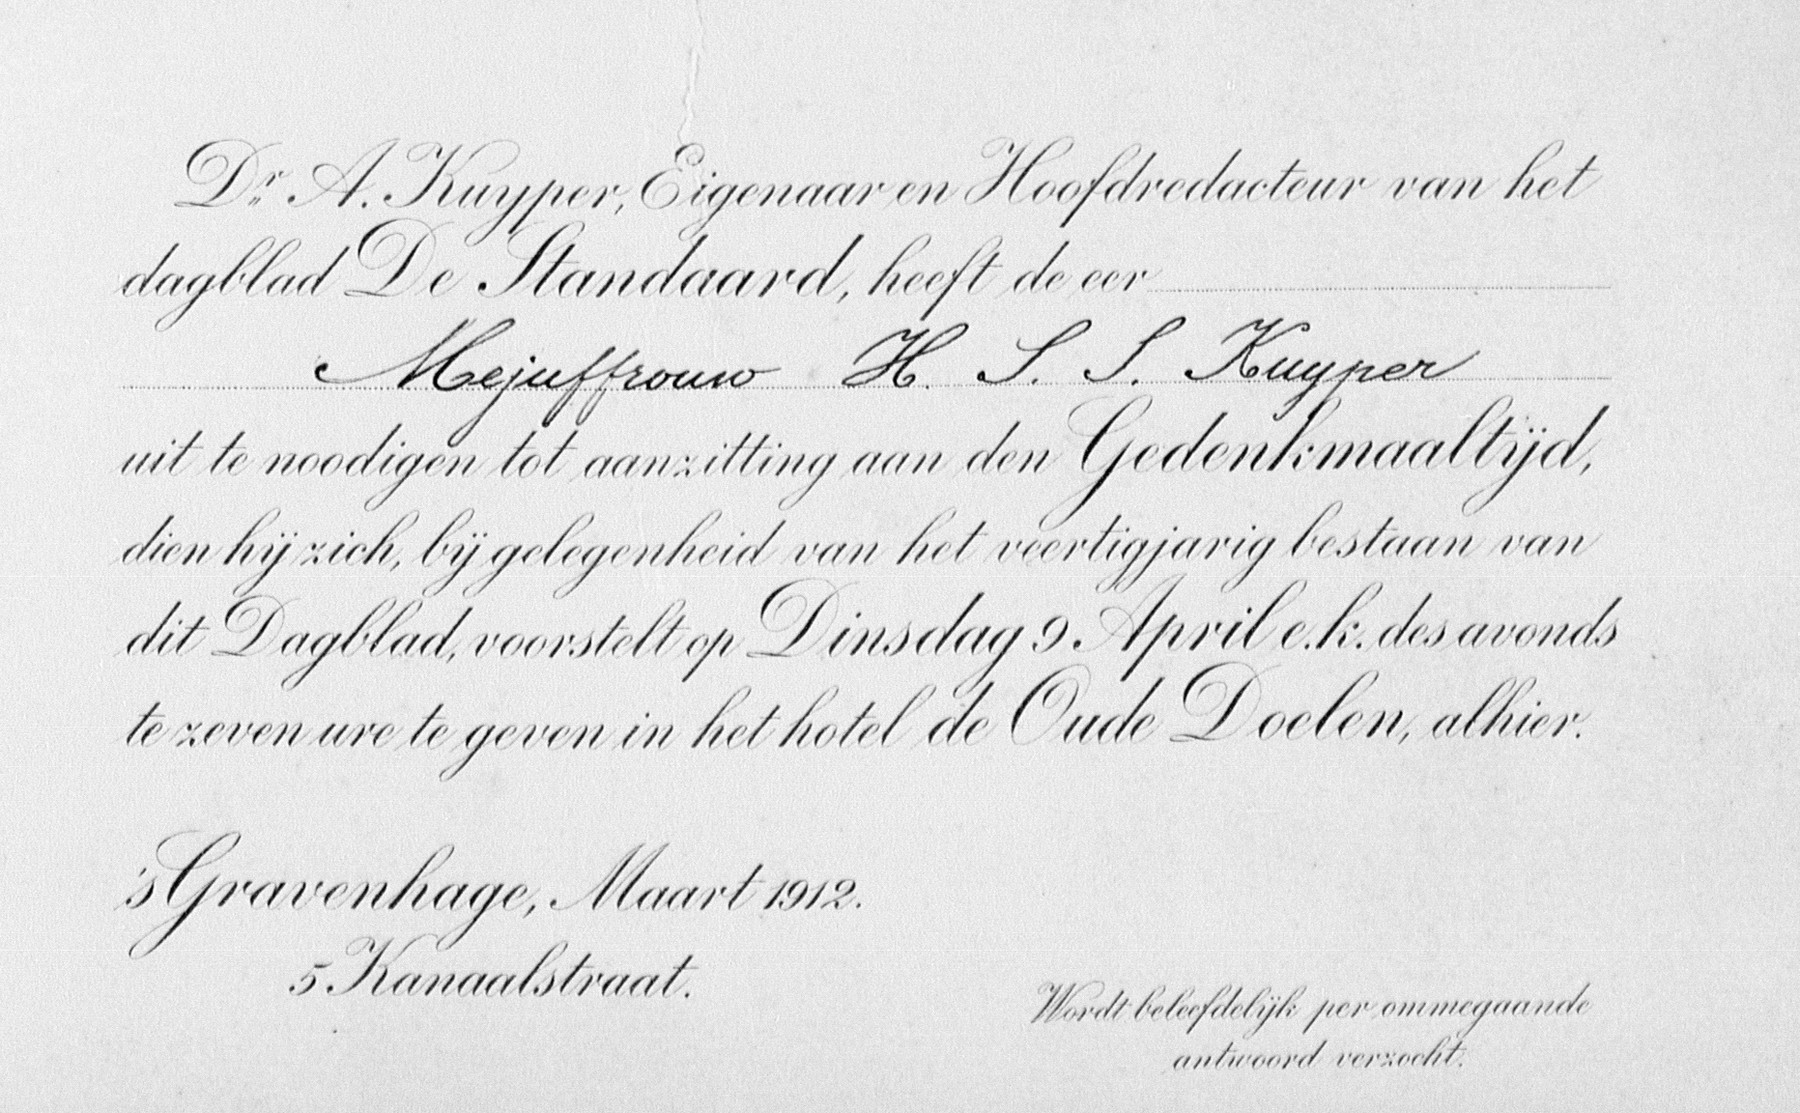 Dr. A. Kuyper, Eigenaar en Hoofdredacteur van het
dagblad De Standaard, heeft de eer
Mejuffrouw H. S. S. Kuyper
uit te noodigen tot aanzitting aan den Gedenkmaaltijd,
dien hij zich, bij gelegenheid van het veertigjarig bestaan van
dit Dagblad, voorstelt op Dinsdag 9 April e.k. des avonds
te zeven ure te geven in het hotel de Oude Doelen, alhier.
's Gravenhage, Maart 1912.
5 Kanaalstraat.
Wordt beleefdelijk per ommegaande
antwoord verzocht.